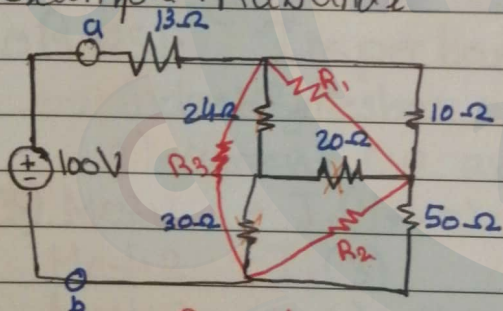 a
13Ω
24Ω
R₁
10Ω
20Ω
100V
R3
30Ω
50Ω
R₂
b